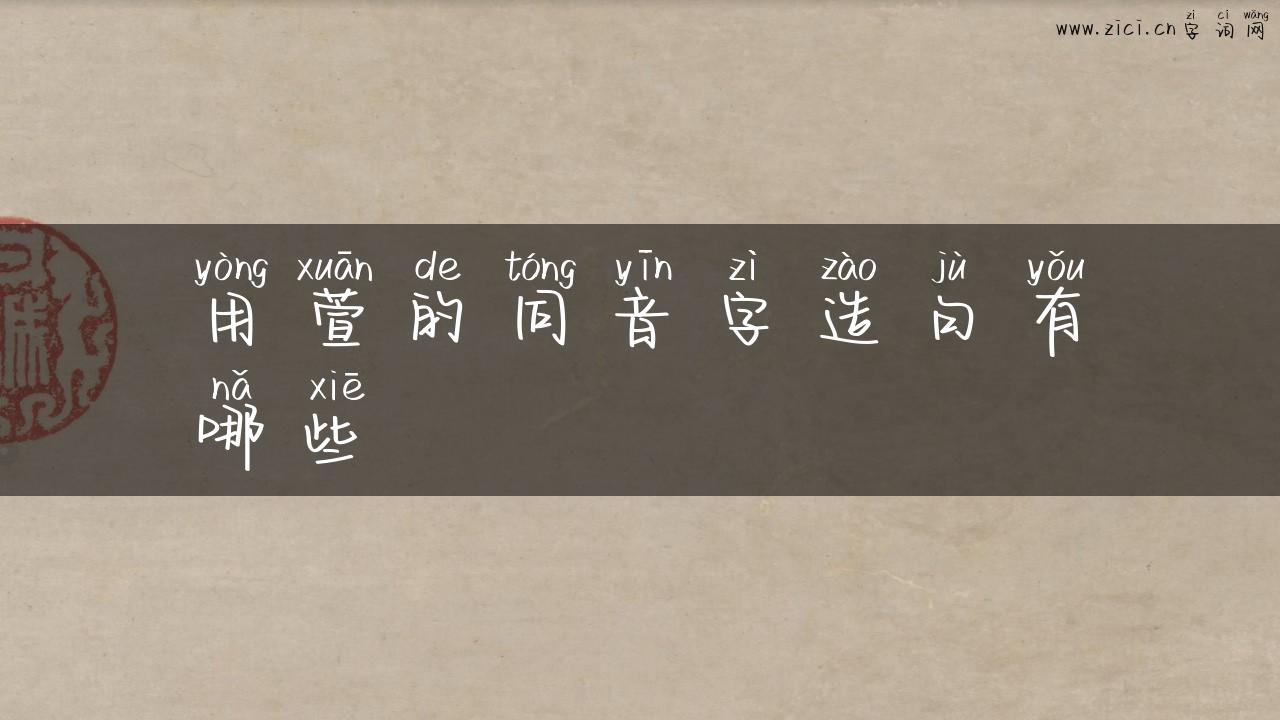 zì cí wǎng
www.zici.cn字词网
yòng xuān de tóng yīn zì zào jù yǒu
用萱的同音字造句有
nǎ xiē
哪些